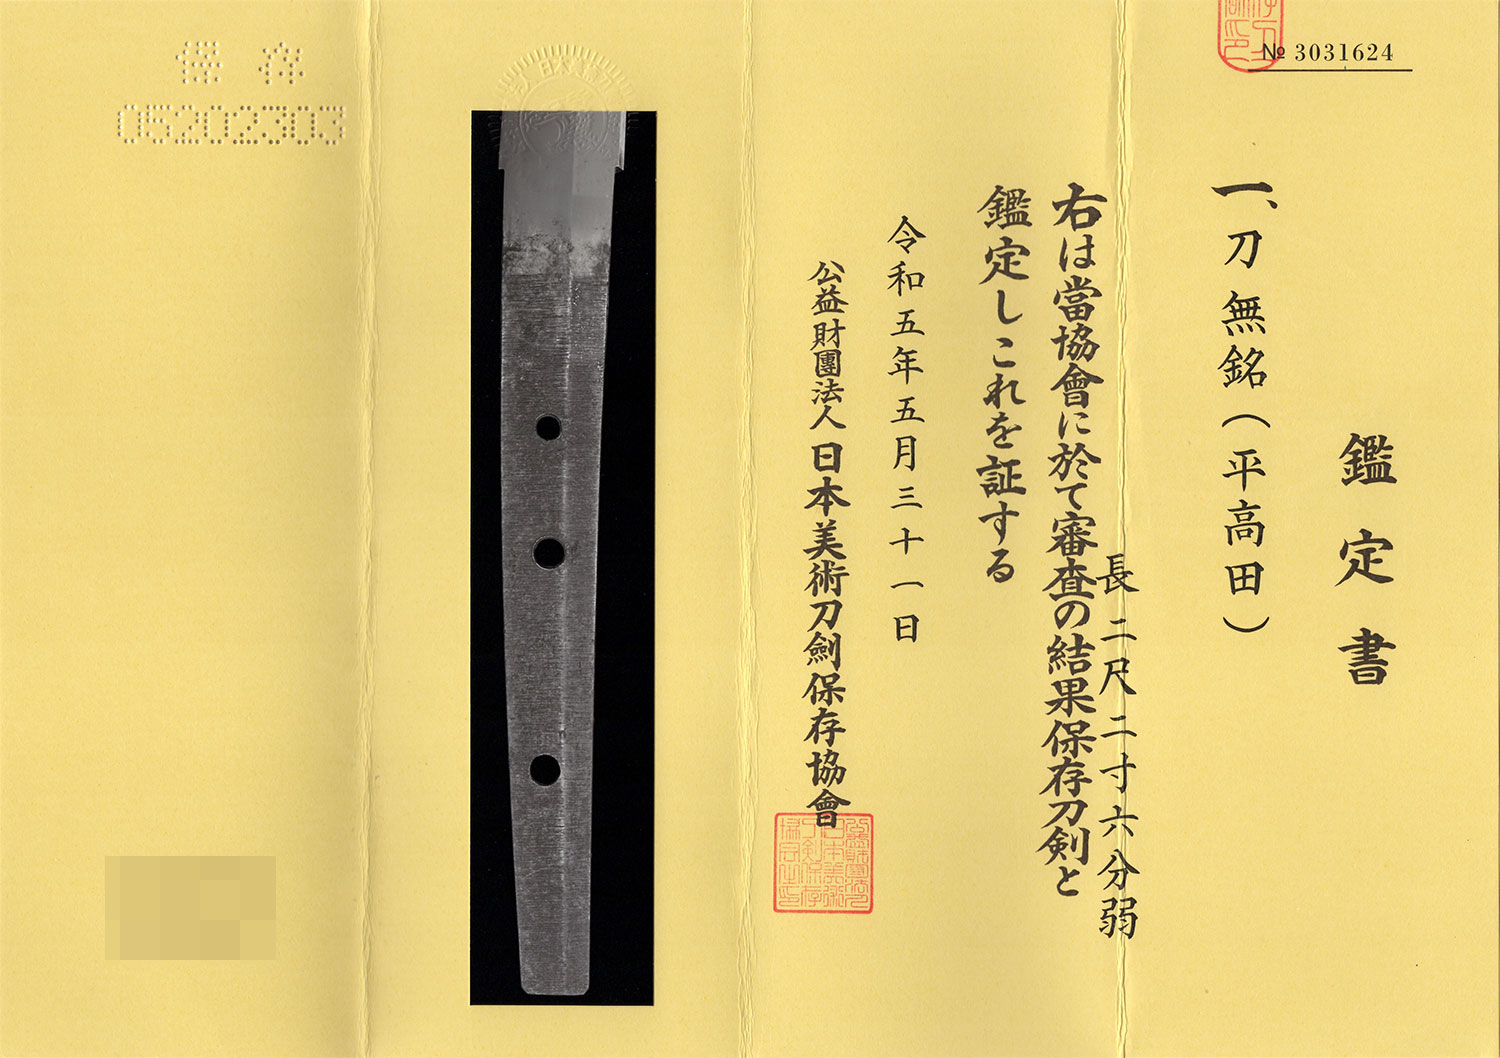 № 3031624
鑑定書
一、刀 無銘(平高田)
長 二尺二寸六分弱
右は當協會に於て審査の結果保存刀剣と
鑑定しこれを証する
令和五年五月三十一日
公益財團法人 日本美術刀劍保存協會
保存
05202303